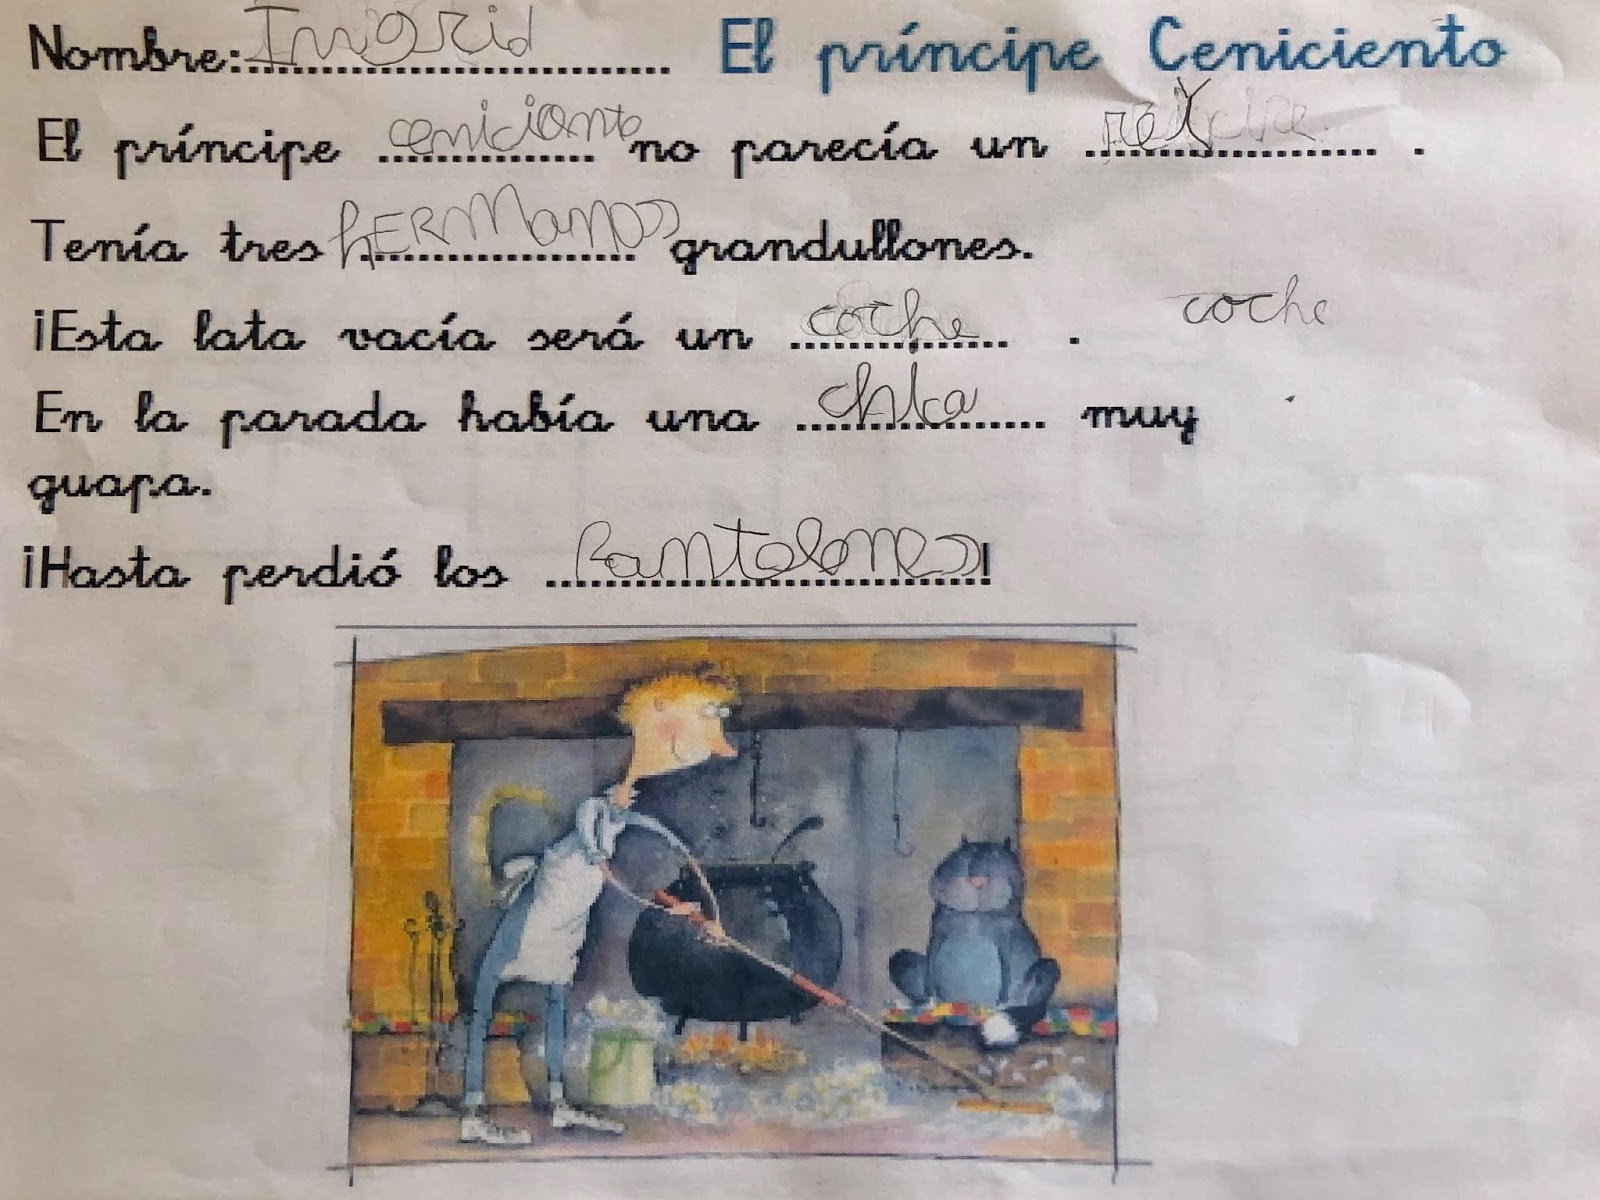 Nombre: Ingrid El príncipe Ceniciento
El príncipe cenicionto no parecía un rey .
Tenía tres hERMManos grandullones.
¡Esta lata vacía será un coche . coche
En la parada había una chica muy
guapa.
¡Hasta perdió los Pantolones!